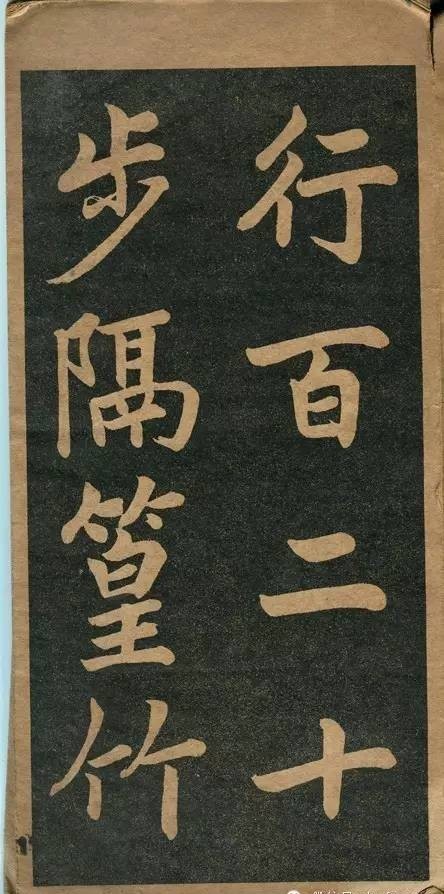 行百二十
步隔篁竹